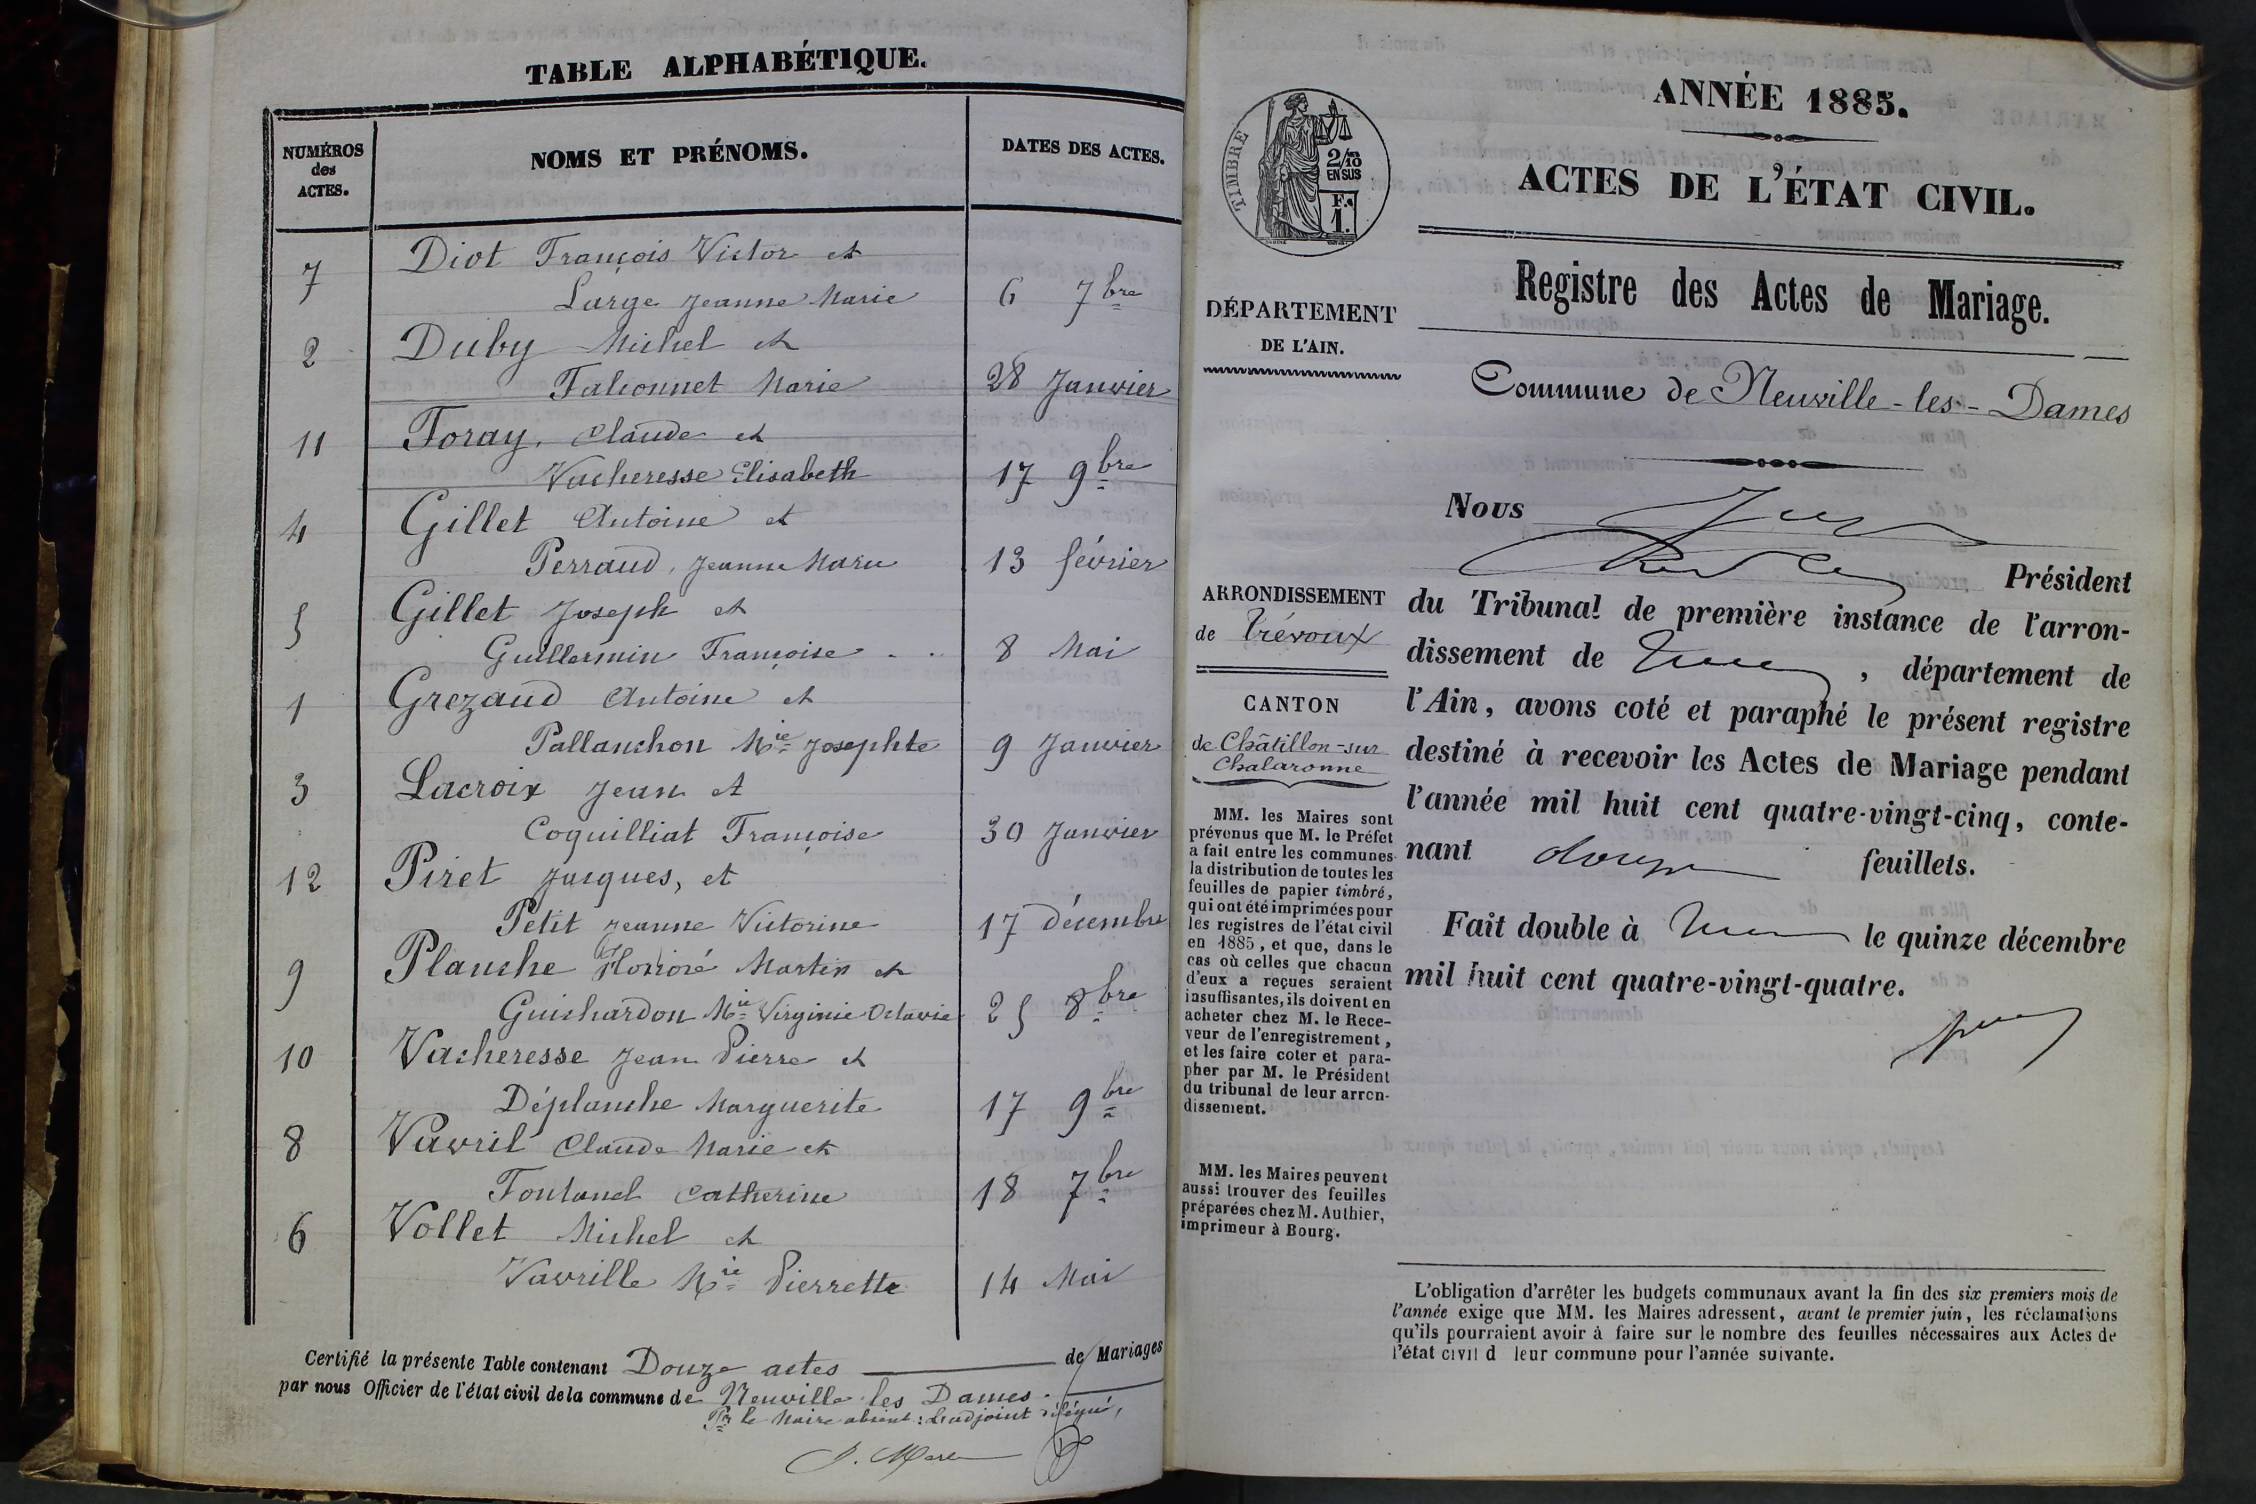 TABLE ALPHABÉTIQUE.
NUMÉROS
des
ACTES.
NOMS ET PRÉNOMS.
DATES DES ACTES.
7 Diot François Victor et
Large Jeanne Marie 6 7bre
2 Duby Michel et
Falconnet Marie 28 Janvier
11 Foray, Claude et
Vacheresse Elisabeth 17 9bre
4 Gillet Antoine et
Perraud, Jeanne Marie 13 février
5 Gillet Joseph et
Guillermin Françoise 8 Mai
1 Grezaud Antoine et
Pallanchon Mie Josephte 9 Janvier
3 Lacroix Jean et
Coquilliat Françoise 30 Janvier
12 Piret Jacques, et
Petit Jeanne Victorine 17 décembre
9 Planche Honoré Martin et
Guichardon Mie Virginie Octavie 25 8bre
10 Vacheresse Jean Pierre et
Déplanche Marguerite 17 9bre
8 Vavril Claude Marie et
Fontanel Catherine 18 7bre
6 Vollet Michel et
Vavrille Mie Pierrette 14 Mai
Certifié la présente Table contenant Douze actes de Mariages
par nous Officier de l'état civil de la commune de Neuville les Dames.
Pr le Maire absent : L'adjoint délégué,
TIMBRE
2/10
EN SUS
Fc
1.
ANNÉE 1885.
ACTES DE L'ÉTAT CIVIL.
Registre des Actes de Mariage.
DÉPARTEMENT
DE L'AIN.
Commune de Neuville-les-Dames
ARRONDISSEMENT
de Trévoux
CANTON
de Châtillon-sur
Chalaronne
MM. les Maires sont
prévenus que M. le Préfet
a fait entre les communes
la distribution de toutes les
feuilles de papier timbré,
qui ont été imprimées pour
les registres de l'état civil
en 1885, et que, dans le
cas où celles que chacun
d'eux a reçues seraient
insuffisantes, ils doivent en
acheter chez M. le Rece-
veur de l'enregistrement,
et les faire coter et para-
pher par M. le Président
du tribunal de leur arron-
dissement.
MM. les Maires peuvent
aussi trouver des feuilles
préparées chez M. Authier,
imprimeur à Bourg.
Nous
Président
du Tribunal de première instance de l'arron-
dissement de , département de
l'Ain, avons coté et paraphé le présent registre
destiné à recevoir les Actes de Mariage pendant
l'année mil huit cent quatre-vingt-cinq, conte-
nant douze feuillets.
Fait double à le quinze décembre
mil huit cent quatre-vingt-quatre.
L'obligation d'arrêter les budgets communaux avant la fin des six premiers mois de
l'année exige que MM. les Maires adressent, avant le premier juin, les réclamations
qu'ils pourraient avoir à faire sur le nombre des feuilles nécessaires aux Actes de
l'état civil d leur commune pour l'année suivante.